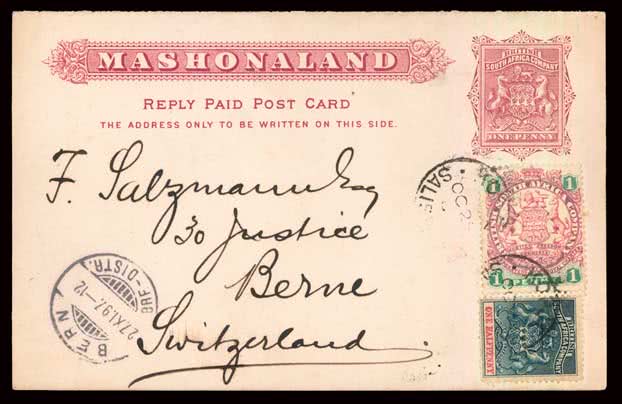 MASHONALAND
REPLY PAID POST CARD
THE ADDRESS ONLY TO BE WRITTEN ON THIS SIDE.
BRITISH
SOUTH AFRICA COMPANY
ONE PENNY
F. Salzmann Esq
30 Justice
Berne
Switzerland
SALIS
OCT 2
1 1
SOUTH AFRICA COMPANY
1 1
ONE HALFPENNY
BERN
27.XI.97.-12
BRF-DISTR.